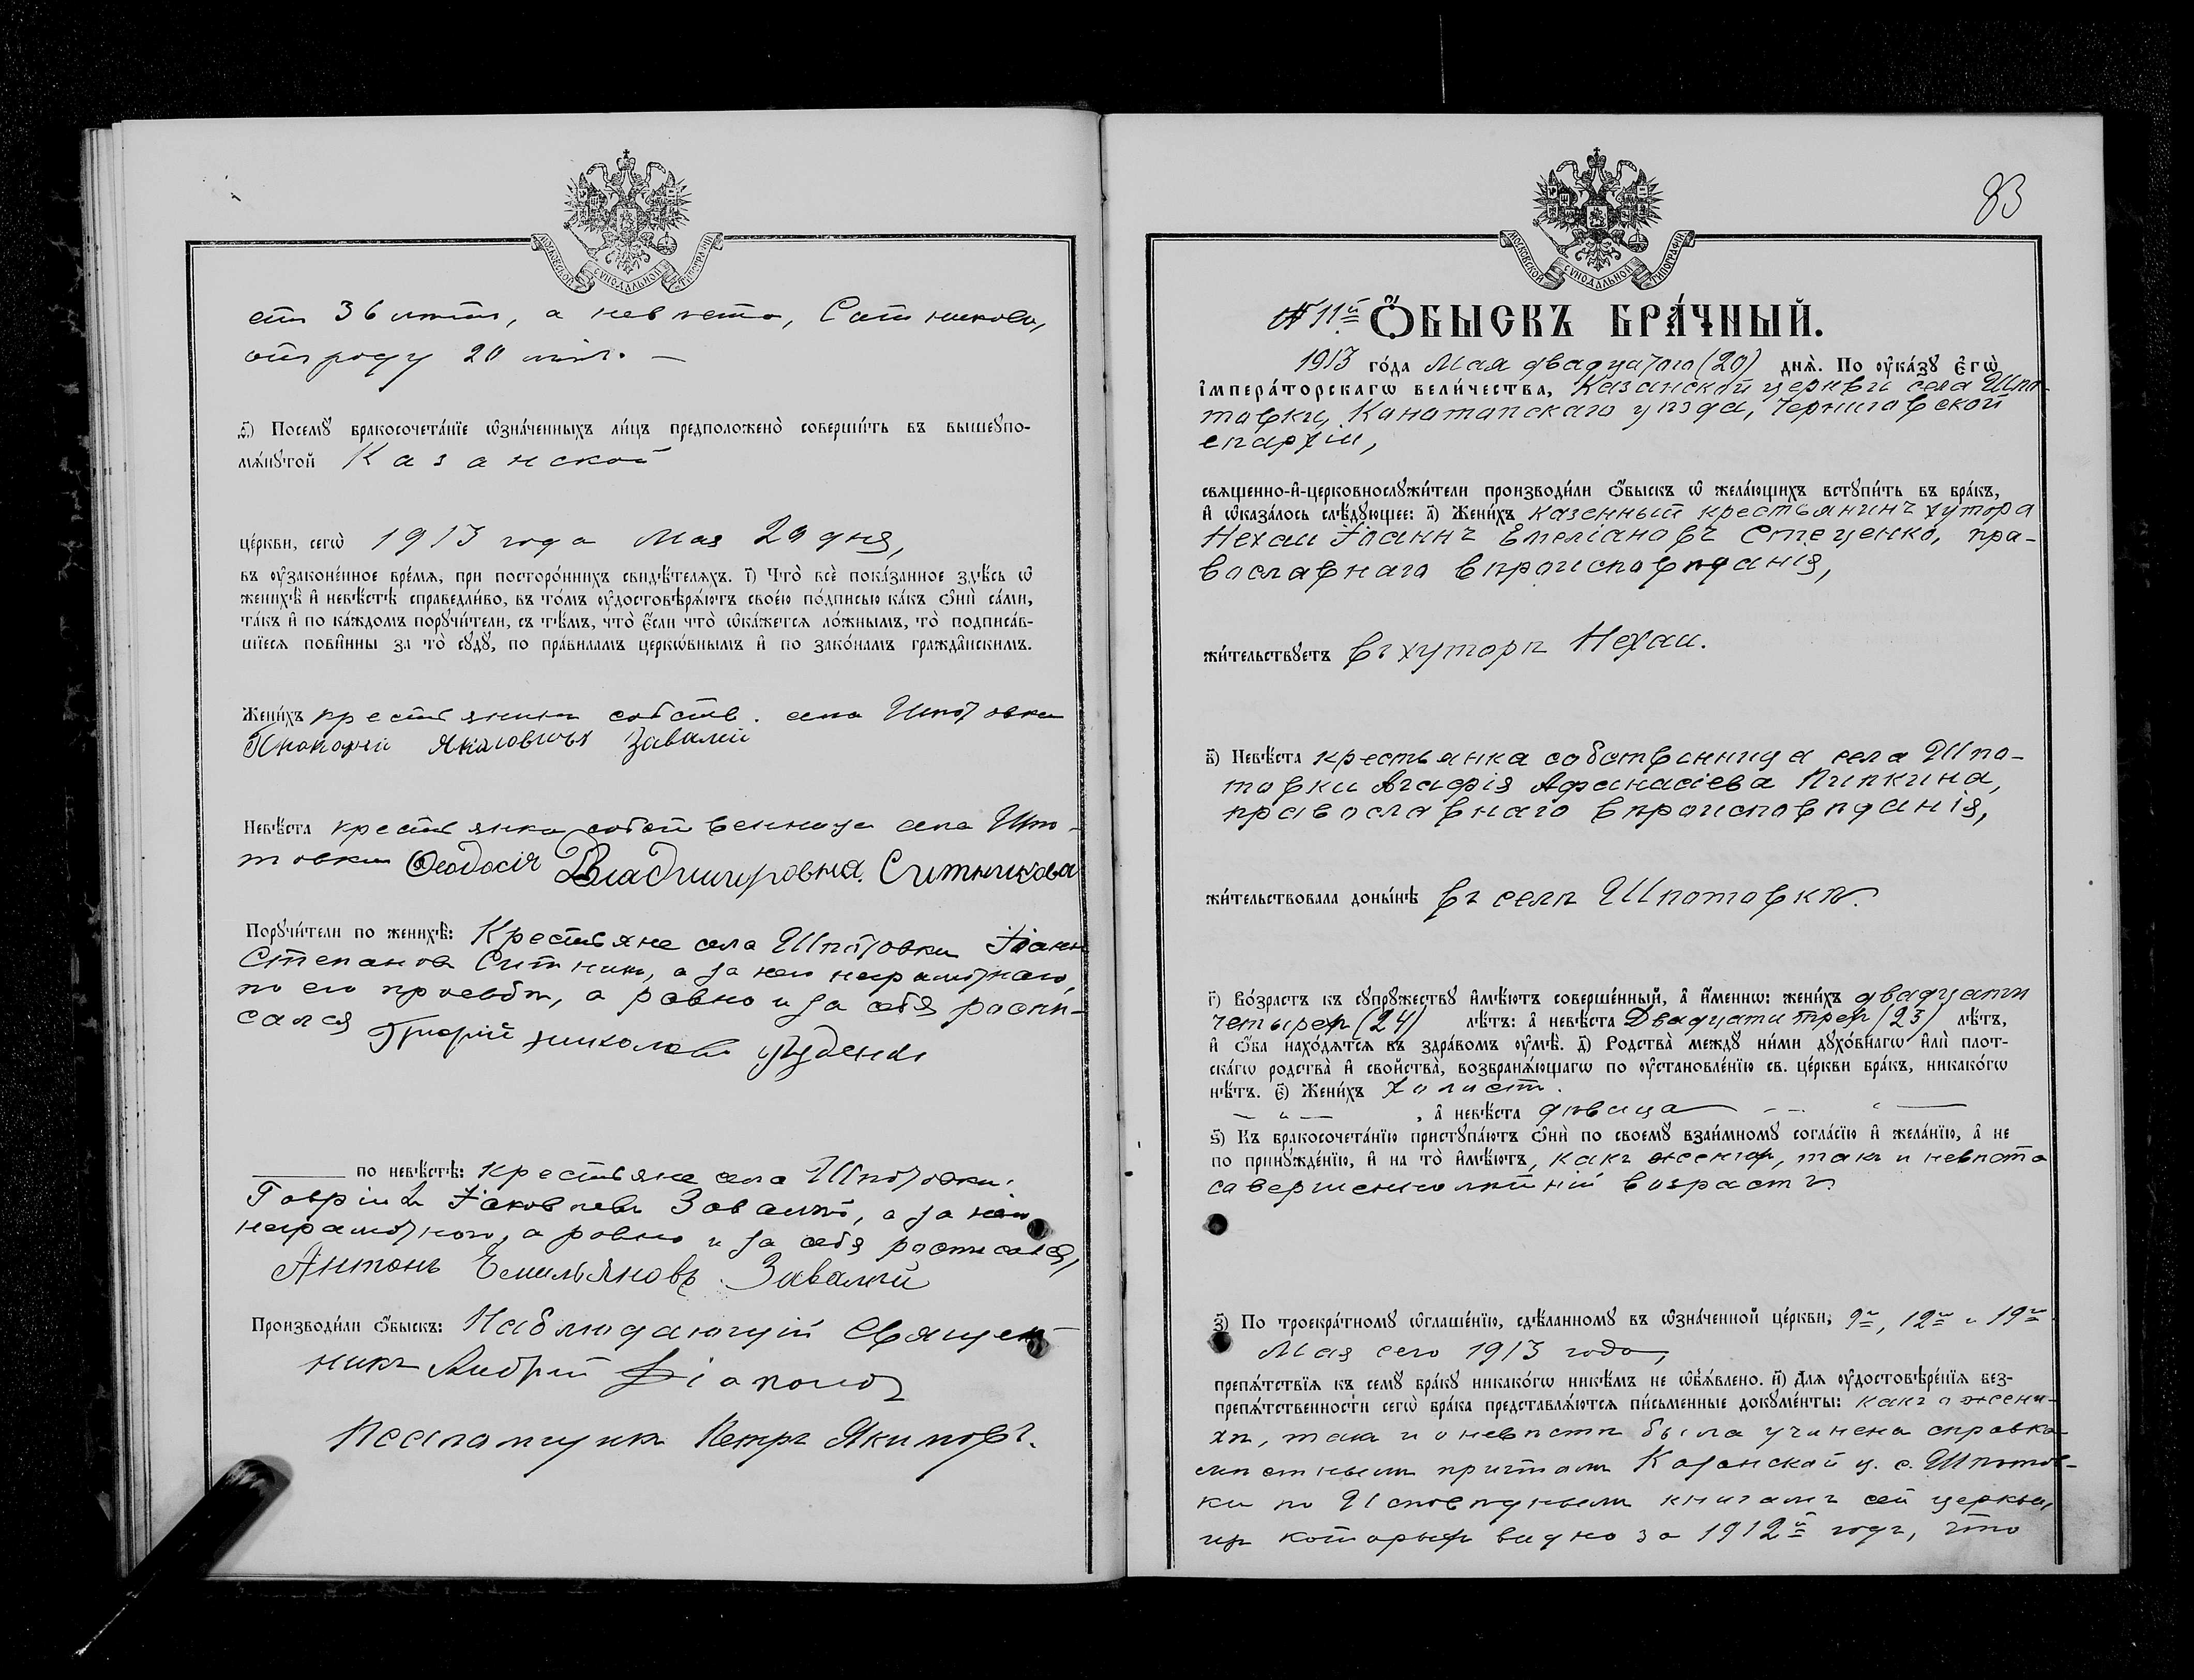 МОСКОВСКОЙ СУНОДАЛЬНОЙ ТИПОГРАФІИ
етъ 36 лѣтъ, а невѣста, Ситникова,
отъ роду 20 лѣтъ. —
ѳ҃) Посемꙋ̀ бракосочета́нїе ѡ҆зна́ченныхъ ли́цъ предположено̀ соверши́ть въ вышеꙋпо-
мѧ́нꙋтой Казанской
це́ркви, сегѡ̀ 1913 года Мая 20 дня,
въ ᲂу҆законе́нное вре́мѧ, при посторо́ннихъ свидѣ́телѧхъ. і҃) Что̀ всѐ пока́занное здѣ́сь ѡ҆
женихѣ̀ и҆ невѣ́стѣ справедли́во, въ то́мъ ᲂу҆достовѣрѧ́ютъ свое́ю по́дписью ка́къ ѻ҆нѝ са́ми,
та́къ и҆ по ка́ждомъ порꙋчи́тели, съ тѣ́мъ, что̀ є҆́сли что̀ ѡ҆ка́жетсѧ ло́жнымъ, то̀ подписа́в-
шїесѧ пови́нны за то̀ сꙋдꙋ̀, по пра́виламъ церкѡ́внымъ и҆ по зако́намъ гражда̑нскимъ.
Жени́хъ крестьянинъ собств. села Шпотовки
Прокопій Яковлевичъ Завалий
Невѣ́ста крестьянка собственница села Шпо-
товки Ѳеодосія Владимировна Ситникова
Порꙋчи́тели по женихѣ̀: Крестьяне села Шпотовки Іоаннъ
Степановъ Ситникъ, а за него неграмотнаго,
по его просьбѣ, а равно и за себя распи-
сался Григорій Николаевъ
по невѣ́стѣ: крестьяне села Шпотовки:
Гавріилъ Іаковлевъ Завалій, а за него
неграмотного, а равно и за себя расписался,
Антонъ Емильяновъ Завалий
Производи́ли ѻ҆́быскъ: Наблюдающій Священ-
никъ Андрей
Псаломщикъ Петръ Якимовъ.
83
МОСКОВСКОЙ СУНОДАЛЬНОЙ ТИПОГРАФІИ
№ 11й Ѻ҆́БЫСКЪ БРА́ЧНЫЙ.
1913 го́да Мая двадцатого (20) днѧ̀. По ᲂу҆ка́зꙋ є҆гѡ̀
і҆мпера́торскагѡ вели́чества, Казанской церкви села Шпо-
товки, Конотопскаго уѣзда, Черниговской
епархіи,
свѧще́нно-и҆-церковнослꙋжи́тели производи́ли ѻ҆́быскъ ѡ҆ жела́ющихъ встꙋпи́ть въ бра́къ,
и҆ ѡ҆каза́лось слѣ́дꙋющее: а҃) Жени́хъ казенный крестьянинъ хутора
Нехаи Іоаннъ Емеліановъ Стеценко, пра-
вославнаго вѣроисповѣданія,
жи́тельствꙋетъ въ хуторѣ Нехаи.
в҃) Невѣ́ста крестьянка собственница села Шпо-
товки Агафія Афанасіева Пипкина,
православнаго вѣроисповѣданія,
жи́тельствовала доны́нѣ въ селѣ Шпотовкѣ.
г҃) Во́зрастъ къ сꙋпрꙋ́жествꙋ и҆мѣ́ютъ соверше́нный, а҆ и҆́меннѡ: жени́хъ двадцати
четырехъ (24) лѣ́тъ: а҆ невѣ́ста Двадцати трехъ (23) лѣ́тъ,
и҆ ѻ҆́ба нахо́дѧтсѧ въ здра́вомъ ᲂу҆мѣ̀. д҃) Родства̀ междꙋ̀ ни́ми дꙋхо́внагѡ и҆лѝ плот-
ска́гѡ родства̀ и҆ свойства̀, возбранѧ́ющагѡ по ᲂу҆становле́нїю св. це́ркви бра́къ, никако́гѡ
нѣ́тъ. є҃) Жени́хъ холостъ.
— „ — , а҆ невѣ́ста дѣвица — „ —
ѕ҃) Къ бракосочета́нїю пристꙋпа́ютъ ѻ҆нѝ по своемꙋ̀ взаи́мномꙋ согла́сїю и҆ жела́нїю, а҆ не
по принꙋжде́нїю, и҆ на то̀ и҆мѣ́ютъ, какъ женихъ, такъ и невѣста
совершеннолѣтній возрастъ.
з҃) По троекра́тномꙋ ѡ҆глаше́нїю, сдѣ́ланномꙋ въ ѡ҆зна́ченной це́ркви, 9го, 12го и 19го
Мая сего 1913 года,
препѧ́тствїѧ къ семꙋ̀ бра́кꙋ никако́гѡ никѣ́мъ не ѡ҆б̾ѧ́влено. и҃) Длѧ ᲂу҆достовѣре́нїѧ без-
препѧ́тственности сегѡ̀ бра́ка представлѧ́ютсѧ пи́сьменные докꙋме́нты: какъ о жени-
хѣ, такъ и о невѣстѣ была учинена справка
мѣстнымъ притомъ Казанской ц. с. Шпотов-
ки по Исповѣднымъ книгамъ сей церкви,
изъ которыхъ видно за 1912й годъ, что